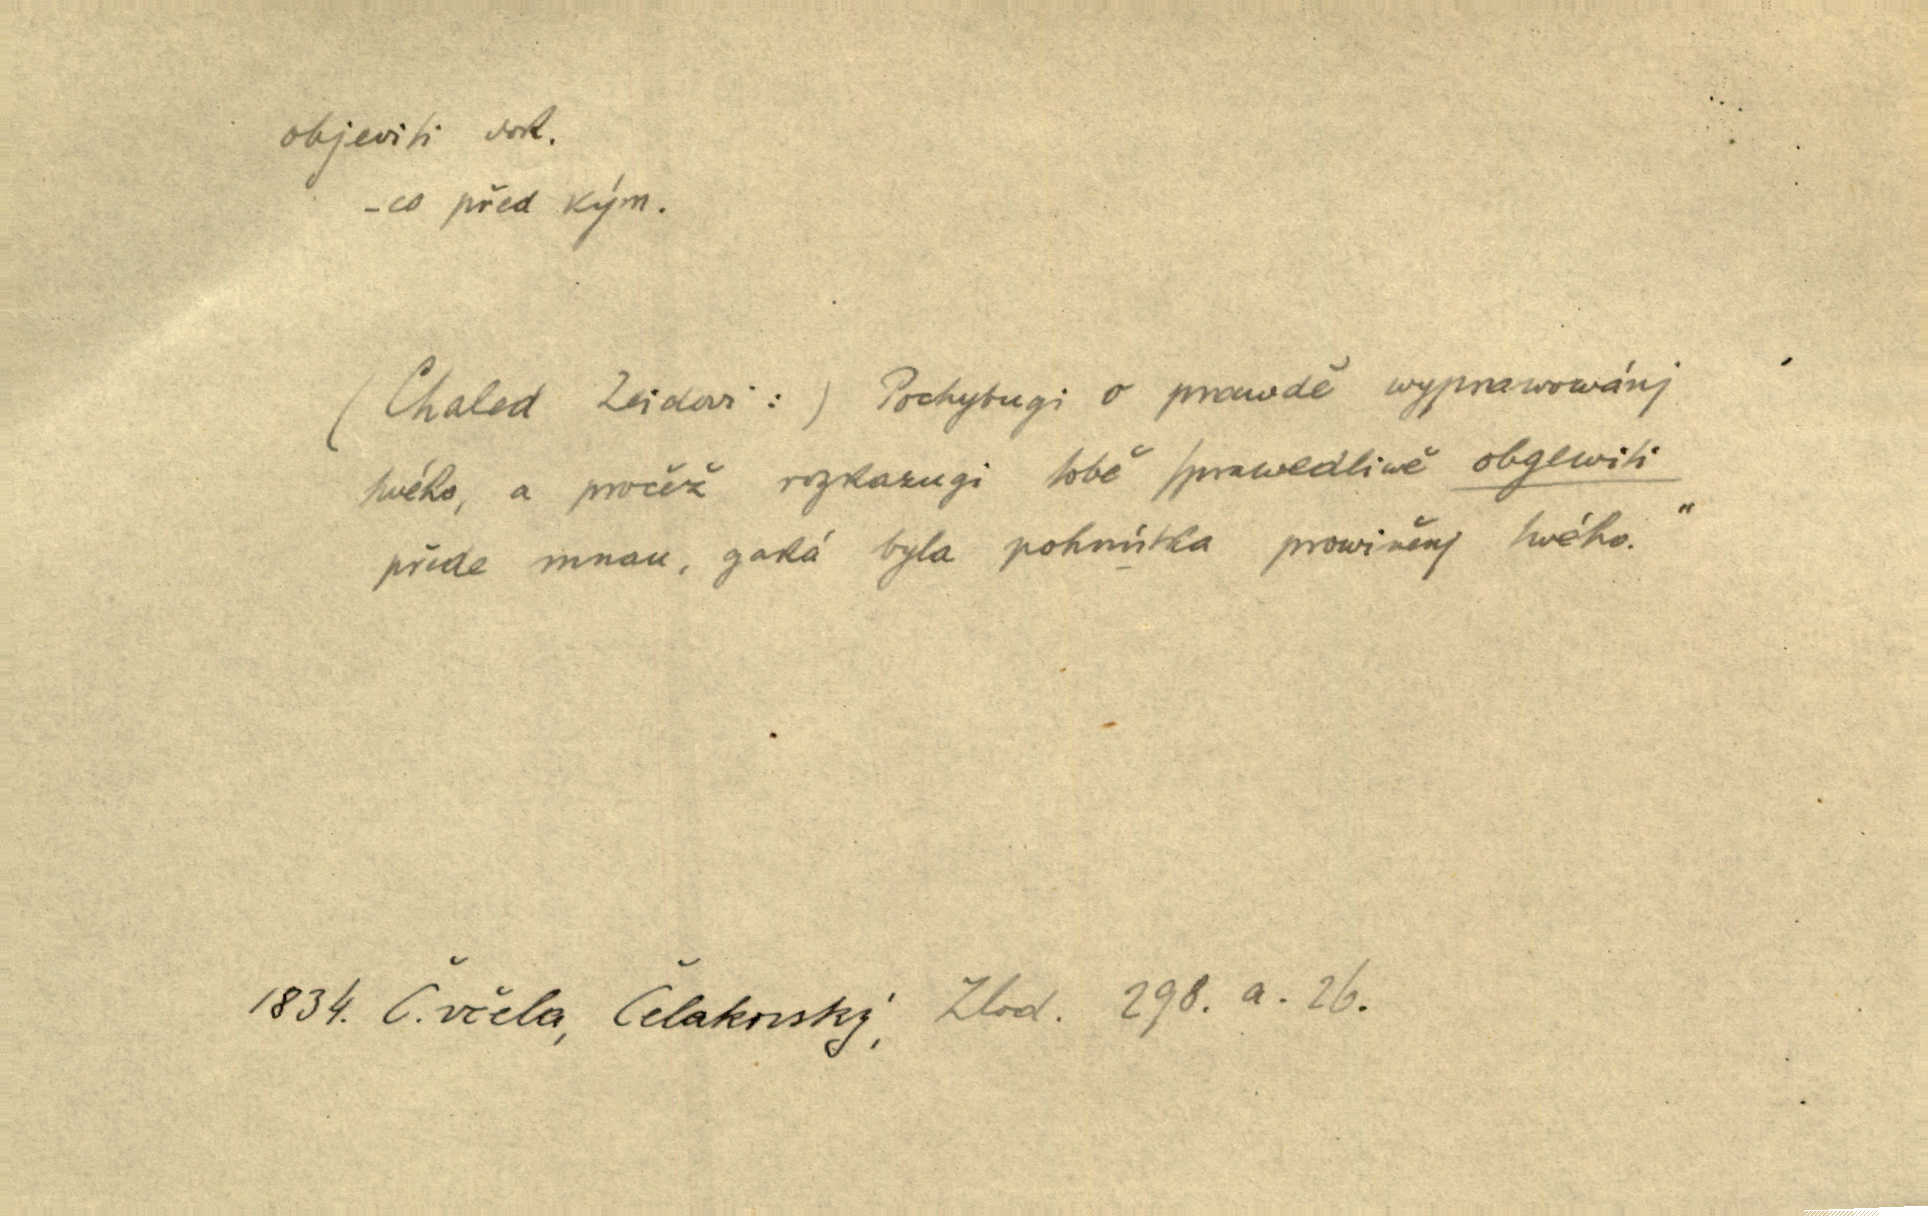 objeviti dok.
- co před kým.
(Chaled Zeidovi :) Pochybugi o prawdě wyprawowánj
twého, a pročěž rozkazugi tobě sprawedliwě obgewiti
přede mnau, gaká byla pohnútka prowiněnj twého."
1834. Č. včela, Čelakovský, Zlod. 298. a. 26.